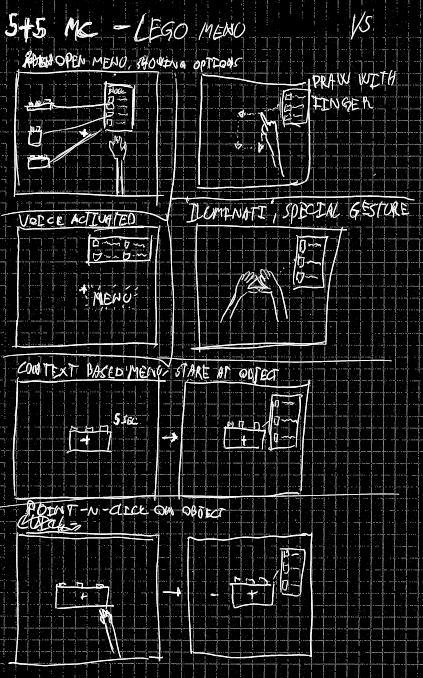 5+5 MC - LEGO MENU
1/5
OPEN MENU, SHOWING OPTIONS
DRAW WITH
FINGER
VOICE ACTIVATED
"ILUMINATI", SPECIAL GESTURE
"MENU"
CONTEXT BASED MENU, STARE AT OBJECT
5 SEC
POINT-N-CLICK ON OBJECT